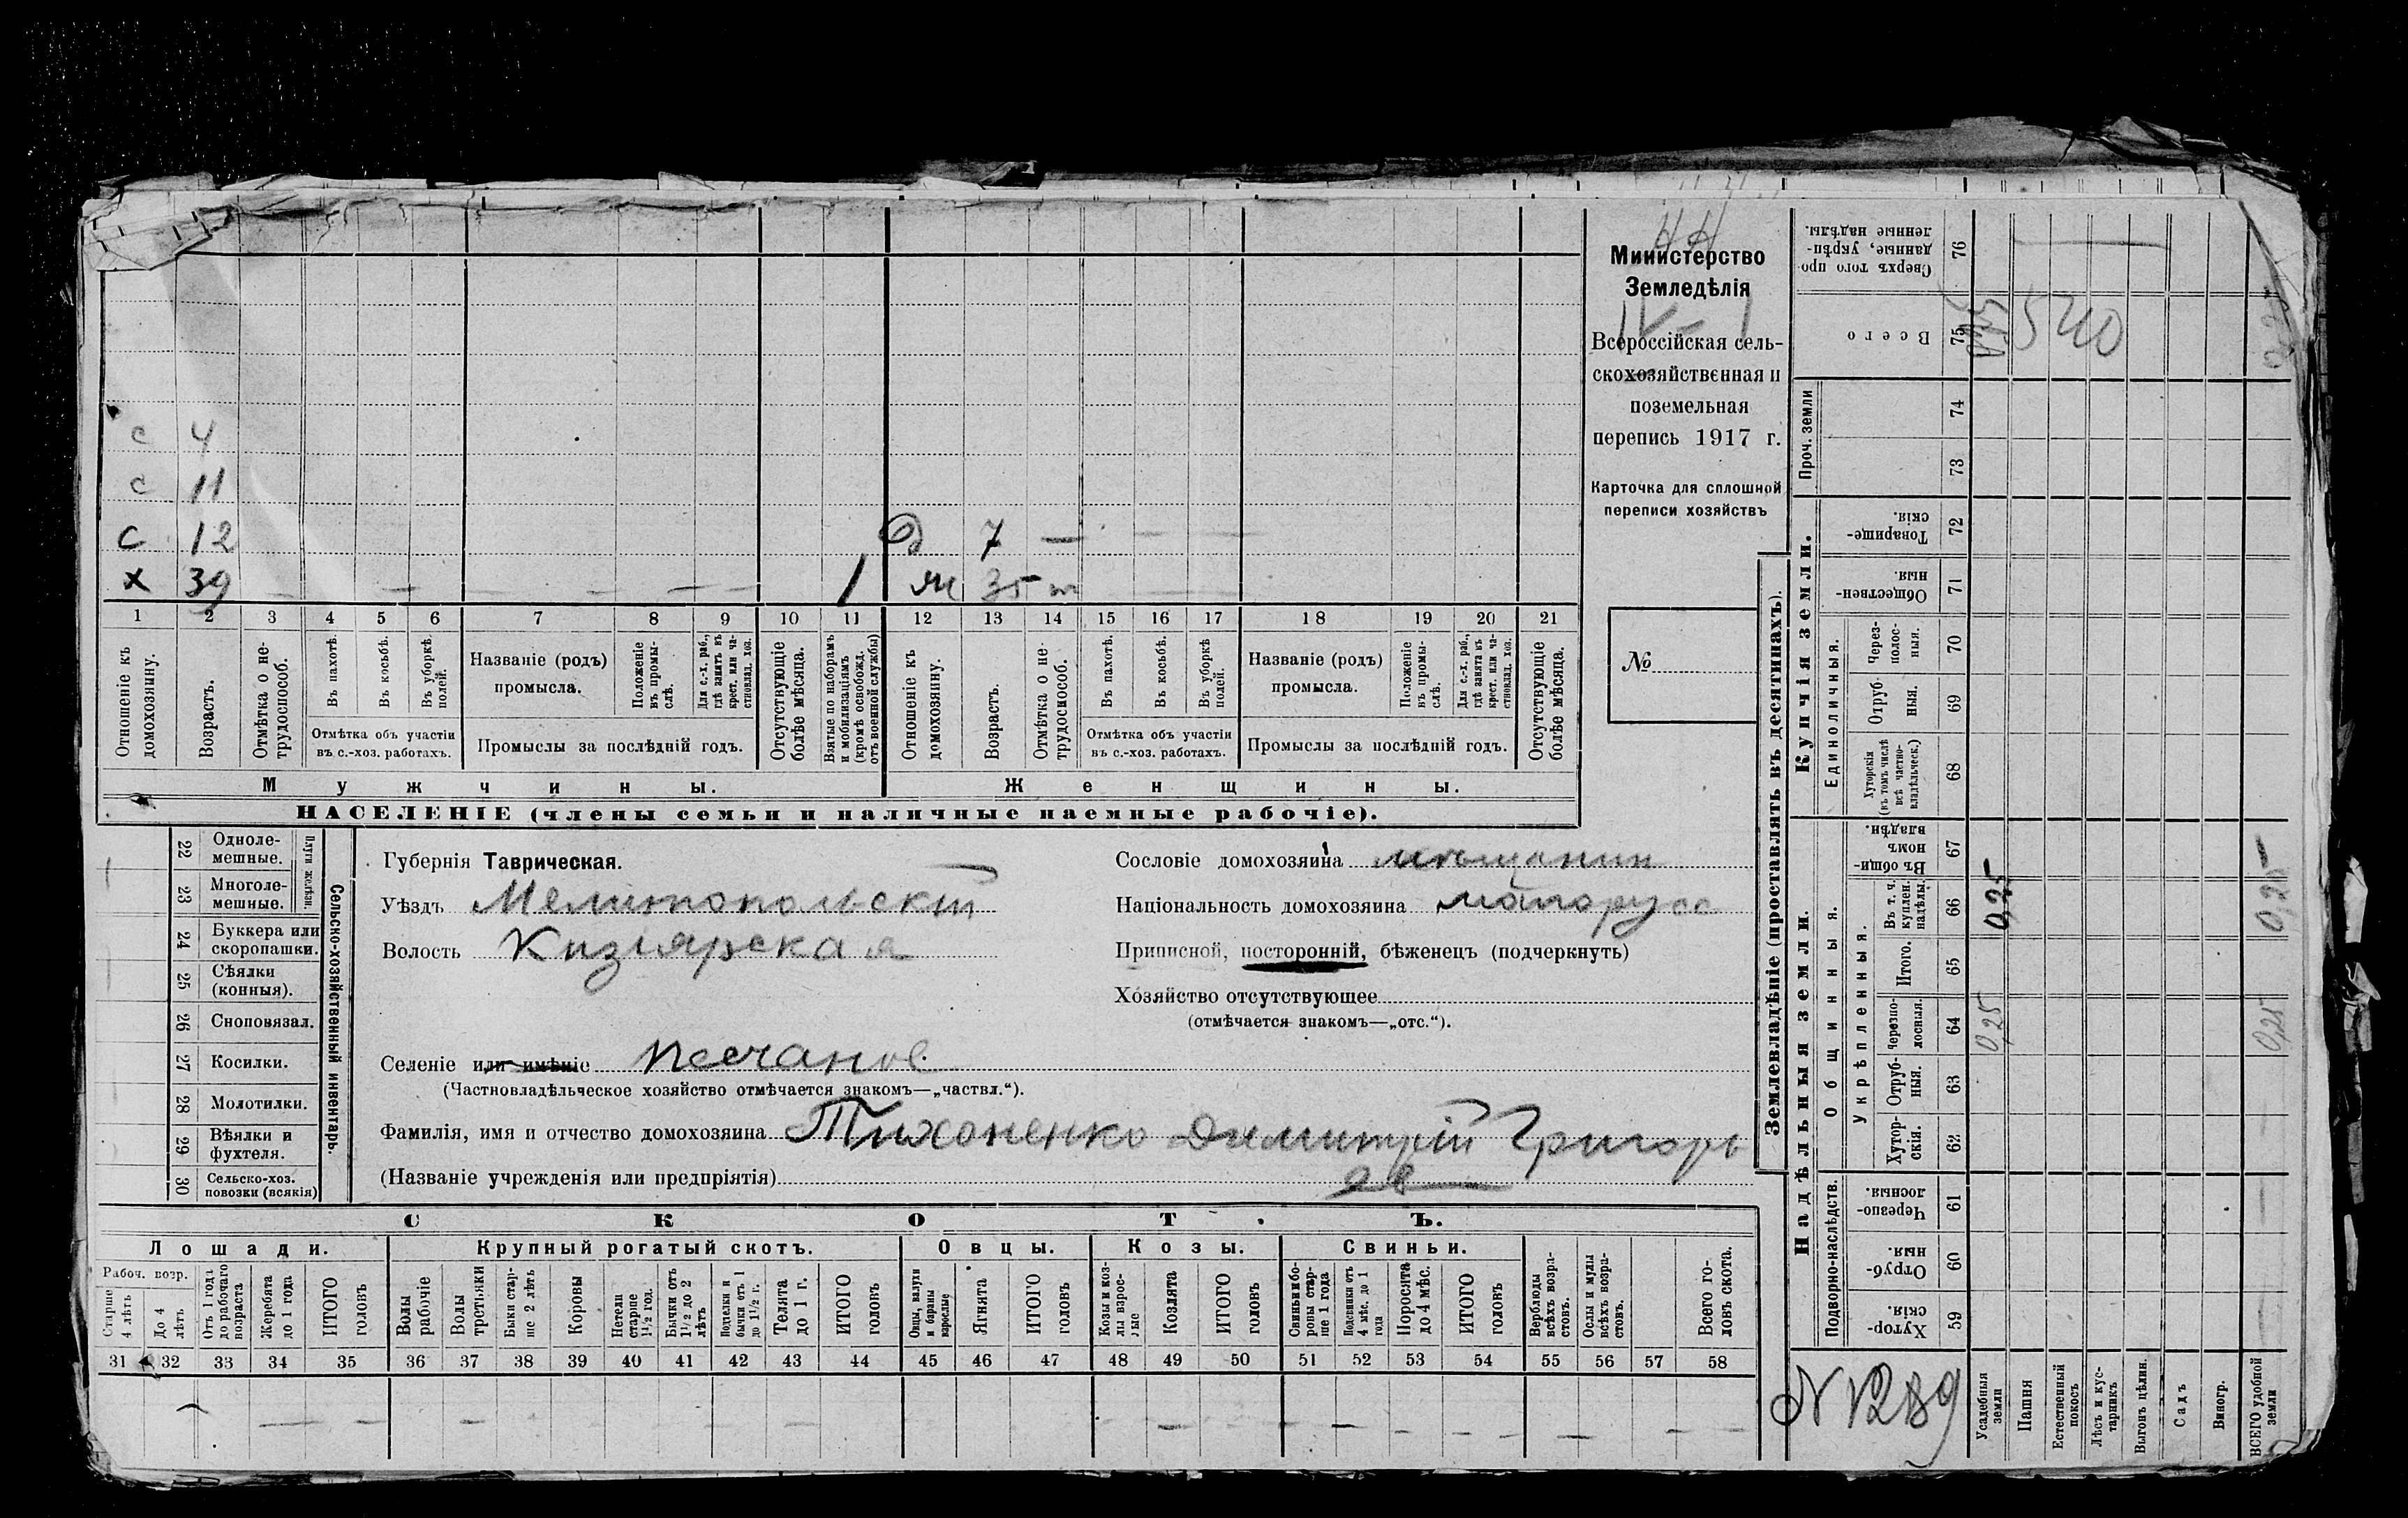 с 4
с 11
с 12 д 7 —
х 39 1 ж 35
1 2 3 4 5 6 7 8 9 10 11 12 13 14 15 16 17 18 19 20 21
Отношеніе къ домохозяину.
Возрастъ.
Отмѣтка о не-
трудоспособ.
Въ пахотѣ.
Въ косьбѣ.
Въ уборкѣ
полей.
Отмѣтка объ участіи
въ с.-хоз. работахъ.
Названіе (родъ)
промысла.
Положеніе
въ промы-
слѣ.
Для с.-х. раб.,
гдѣ занятъ въ
крест. или ча-
стновлад. хоз.
Промыслы за послѣдній годъ.
Отсутствующіе
болѣе мѣсяца.
Взятые по наборамъ
и мобилизаціямъ
(кромѣ освобожд.
отъ военной службы)
Отношеніе къ
домохозяину.
Возрастъ.
Отмѣтка о не-
трудоспособ.
Въ пахотѣ.
Въ косьбѣ.
Въ уборкѣ
полей.
Отмѣтка объ участіи
въ с.-хоз. работахъ.
Названіе (родъ)
промысла.
Положеніе
въ промы-
слѣ.
Для с.-х. раб.,
гдѣ занята въ
крест. или ча-
стновлад. хоз.
Промыслы за послѣдній годъ.
Отсутствующіе
болѣе мѣсяца.
Мужчины.
Женщины.
НАСЕЛЕНІЕ (члены семьи и наличные наемные рабочіе).
Министерство
Земледѣлія
Всероссійская сель-
скохозяйственная и
поземельная
перепись 1917 г.
Карточка для сплошной
переписи хозяйствъ
№
22 Одноле-
мешные.
23 Многоле-
мешные.
Плуги желѣзн.
24 Буккера или
скоропашки.
25 Сѣялки
(конныя).
26 Сноповязал.
27 Косилки.
28 Молотилки.
29 Вѣялки и
фухтеля.
30 Сельско-хоз.
повозки (всякія)
Сельско-хозяйственный инвентарь.
Губернія Таврическая.
Уѣздъ Мелитопольскій
Волость Кизіярская
Селеніе или имѣніе Песчаное
(Частновладѣльческое хозяйство отмѣчается знакомъ—„частвл.“).
Фамилія, имя и отчество домохозяина Тихоненко Димитрій Григорь
ев
(Названіе учрежденія или предпріятія)
Сословіе домохозяина мѣщанин
Національность домохозяина малорусс
Приписной, посторонній, бѣженецъ (подчеркнуть)
Хозяйство отсутствующее
(отмѣчается знакомъ—„отс.“).
СКОТЪ.
Лошади.
Крупный рогатый скотъ.
Овцы.
Козы.
Свиньи.
Рабоч. возр.
Старше
4 лѣтъ
До 4
лѣтъ
Отъ 1 года
до рабочаго
возраста
Жеребята
до 1 года
ИТОГО
головъ
Волы
рабочіе
Волы
третьяки
Быки стар-
ше 2 лѣтъ
Коровы
Нетели
старше
1½ год.
Бычки отъ
1½ до 2
лѣтъ
Подтелки и
бычки отъ 1
до 1½ г.
Телята
до 1 г.
ИТОГО
головъ
Овцы, валухи
и бараны
взрослые
Ягнята
ИТОГО
головъ
Козы и коз-
лы взрос-
лые
Козлята
ИТОГО
головъ
Свиньи и бо-
ровы стар-
ше 1 года
Подсвинки отъ
4 мѣс. до 1
года
Поросята
до 4 мѣс.
ИТОГО
головъ
Верблюды
всѣхъ возра-
стовъ.
Ослы и мулы
всѣхъ возра-
стовъ.
Всего го-
ловъ скота.
31 32 33 34 35 36 37 38 39 40 41 42 43 44 45 46 47 48 49 50 51 52 53 54 55 56 57 58
Землевладѣніе (проставлять въ десятинахъ).
Купчія земли.
Надѣльныя земли.
Сверхъ того про-
данные, укрѣп-
ленные надѣлы.
76
Всего
75
540
Проч. земли
74
73
Товарище-
скія.
72
Обществен-
ныя.
71
Единоличныя.
Через-
полос-
ныя.
70
Отруб-
ныя.
69
Хуторскія
(въ томъ числѣ
всѣ частно-
владѣльческ.)
68
Общинныя.
Въ общи-
номъ
владѣн.
67
Укрѣпленныя.
Въ т. ч.
куплен.
надѣлы.
66
0,25 0,25
Итого.
65
Черезпо-
лосныя.
64
0,25 0,25
Отруб-
ныя.
63
Хутор-
скія.
62
Подворно-наслѣдств.
Черезпо-
лосныя.
61
Отруб-
ныя.
60
Хутор-
скія.
59
N 1289
Усадебныя
земли
Пашня
Естественный
покосъ
Лѣсъ и кус-
тарникъ
Выгонъ цѣлин.
Садъ
Виногр.
ВСЕГО удобной
земли